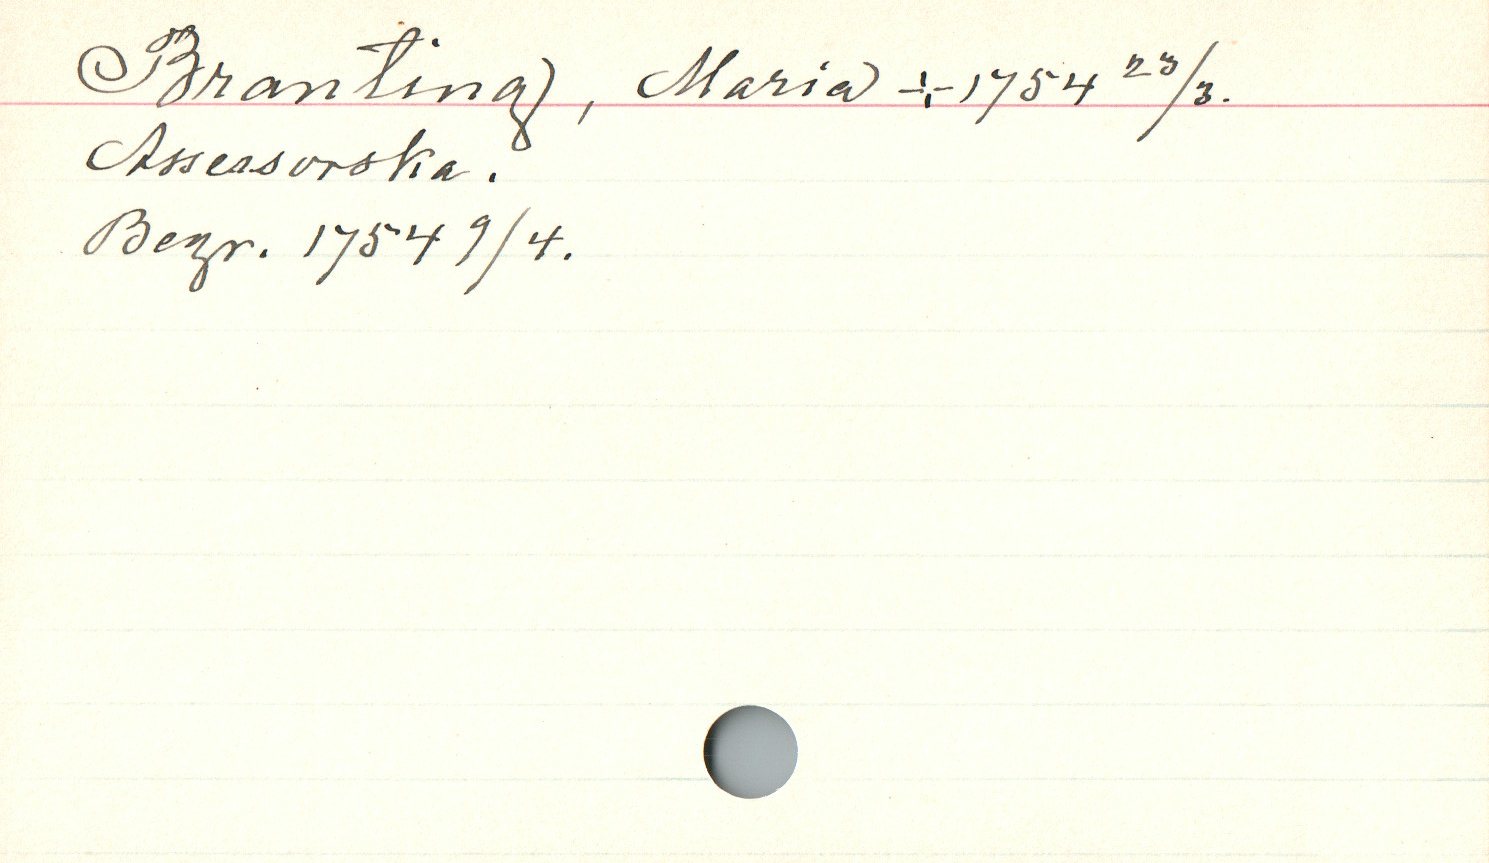 Branting, Maria ÷ 1754 23/3.
Assessorska.
Begr. 1754 9/4.